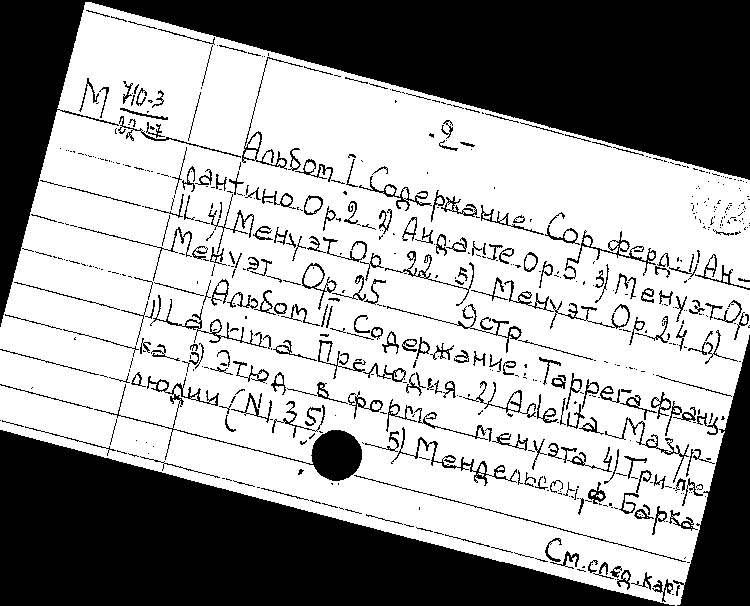 М 710-3
-2-
Альбом I Содержание: Сор, ферд.: 1) Ан-
дантино. Ор. 2 2) Анданте. Ор. 5. 3) Менуэт. Ор.
11 4) Менуэт. Ор. 22. 5) Менуэт. Ор. 24. 6)
Менуэт. Ор. 25 9 стр
Альбом II. Содержание: Таррега, франц.:
1) Lagrima. Прелюдия. 2) Adelita. Мазур-
ка. 3) Этюд в форме менуэта. 4) Три пре-
людии (N 1, 3, 5) 5) Мендельсон, ф. Барка-
См. след. карт